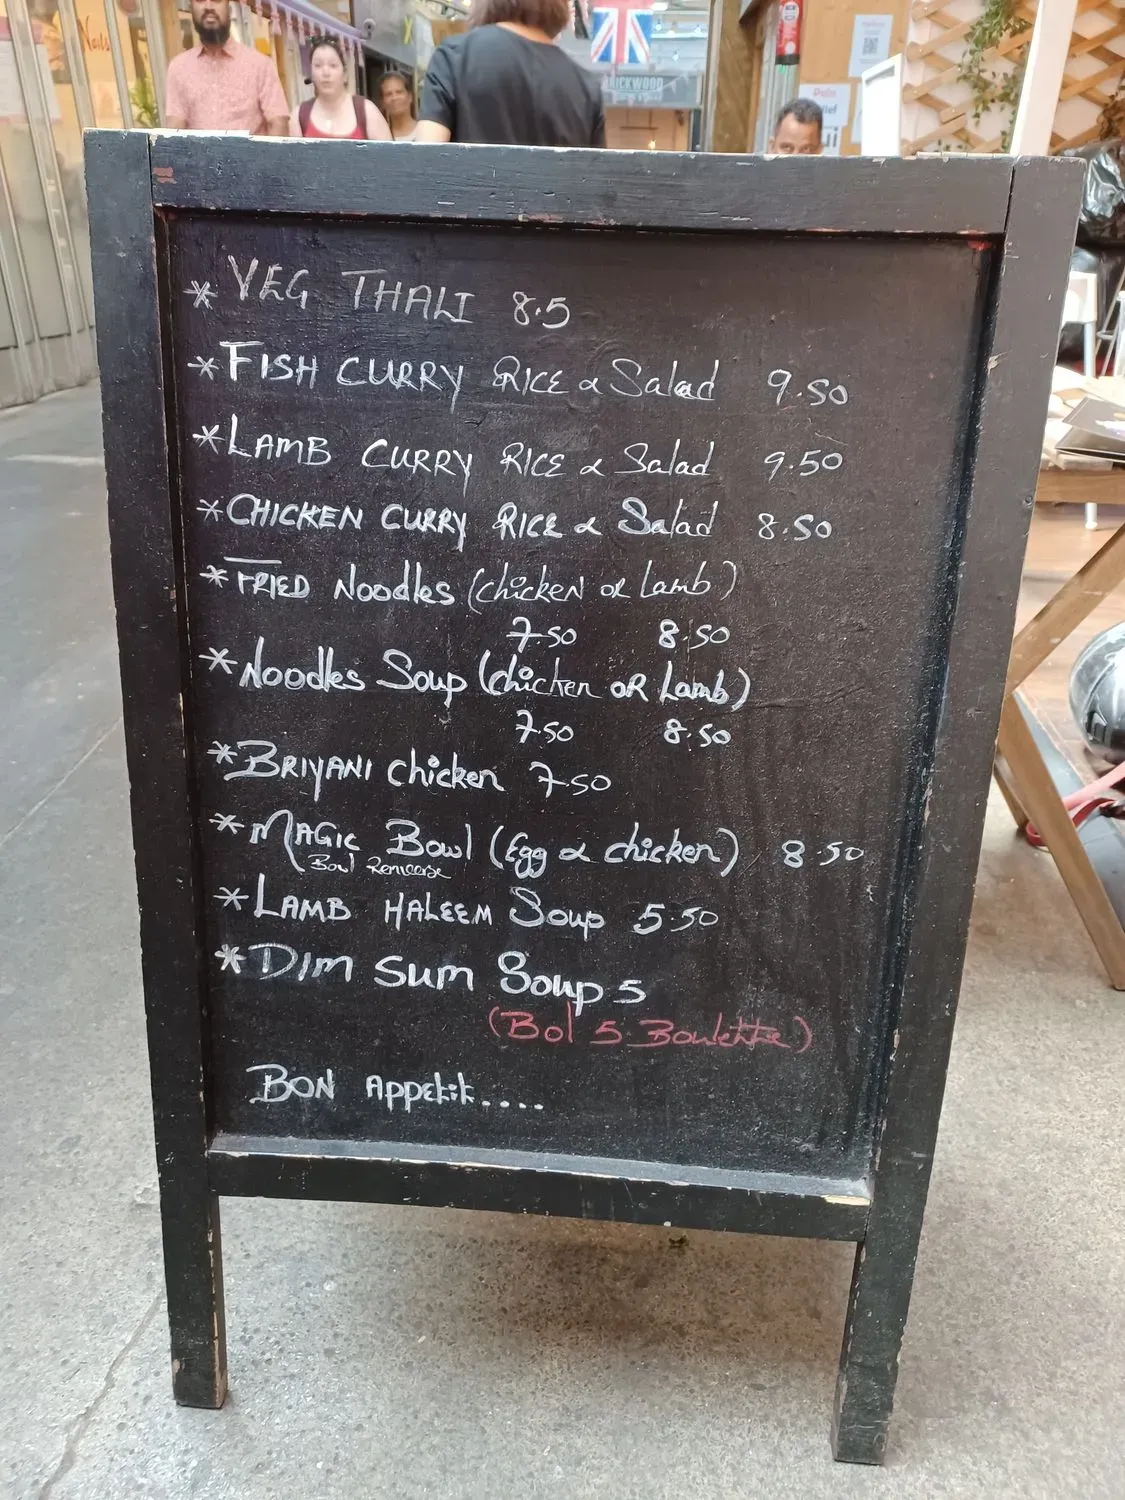 Nails
BRICKWOOD
* VEG THALI 8.5
* FISH CURRY RICE & Salad 9.50
* LAMB CURRY RICE & Salad 9.50
* CHICKEN CURRY RICE & Salad 8.50
* FRIED Noodles (chicken OR Lamb)
7.50 8.50
* Noodles Soup (chicken OR Lamb)
7.50 8.50
* BRIYANI chicken 7.50
* MAGIC Bowl (Egg & chicken) 8.50
Bowl Renverse
* LAMB HALEEM Soup 5.50
* DIM SUM Soup 5
(Bol 5 Boulette)
BON Appetit....